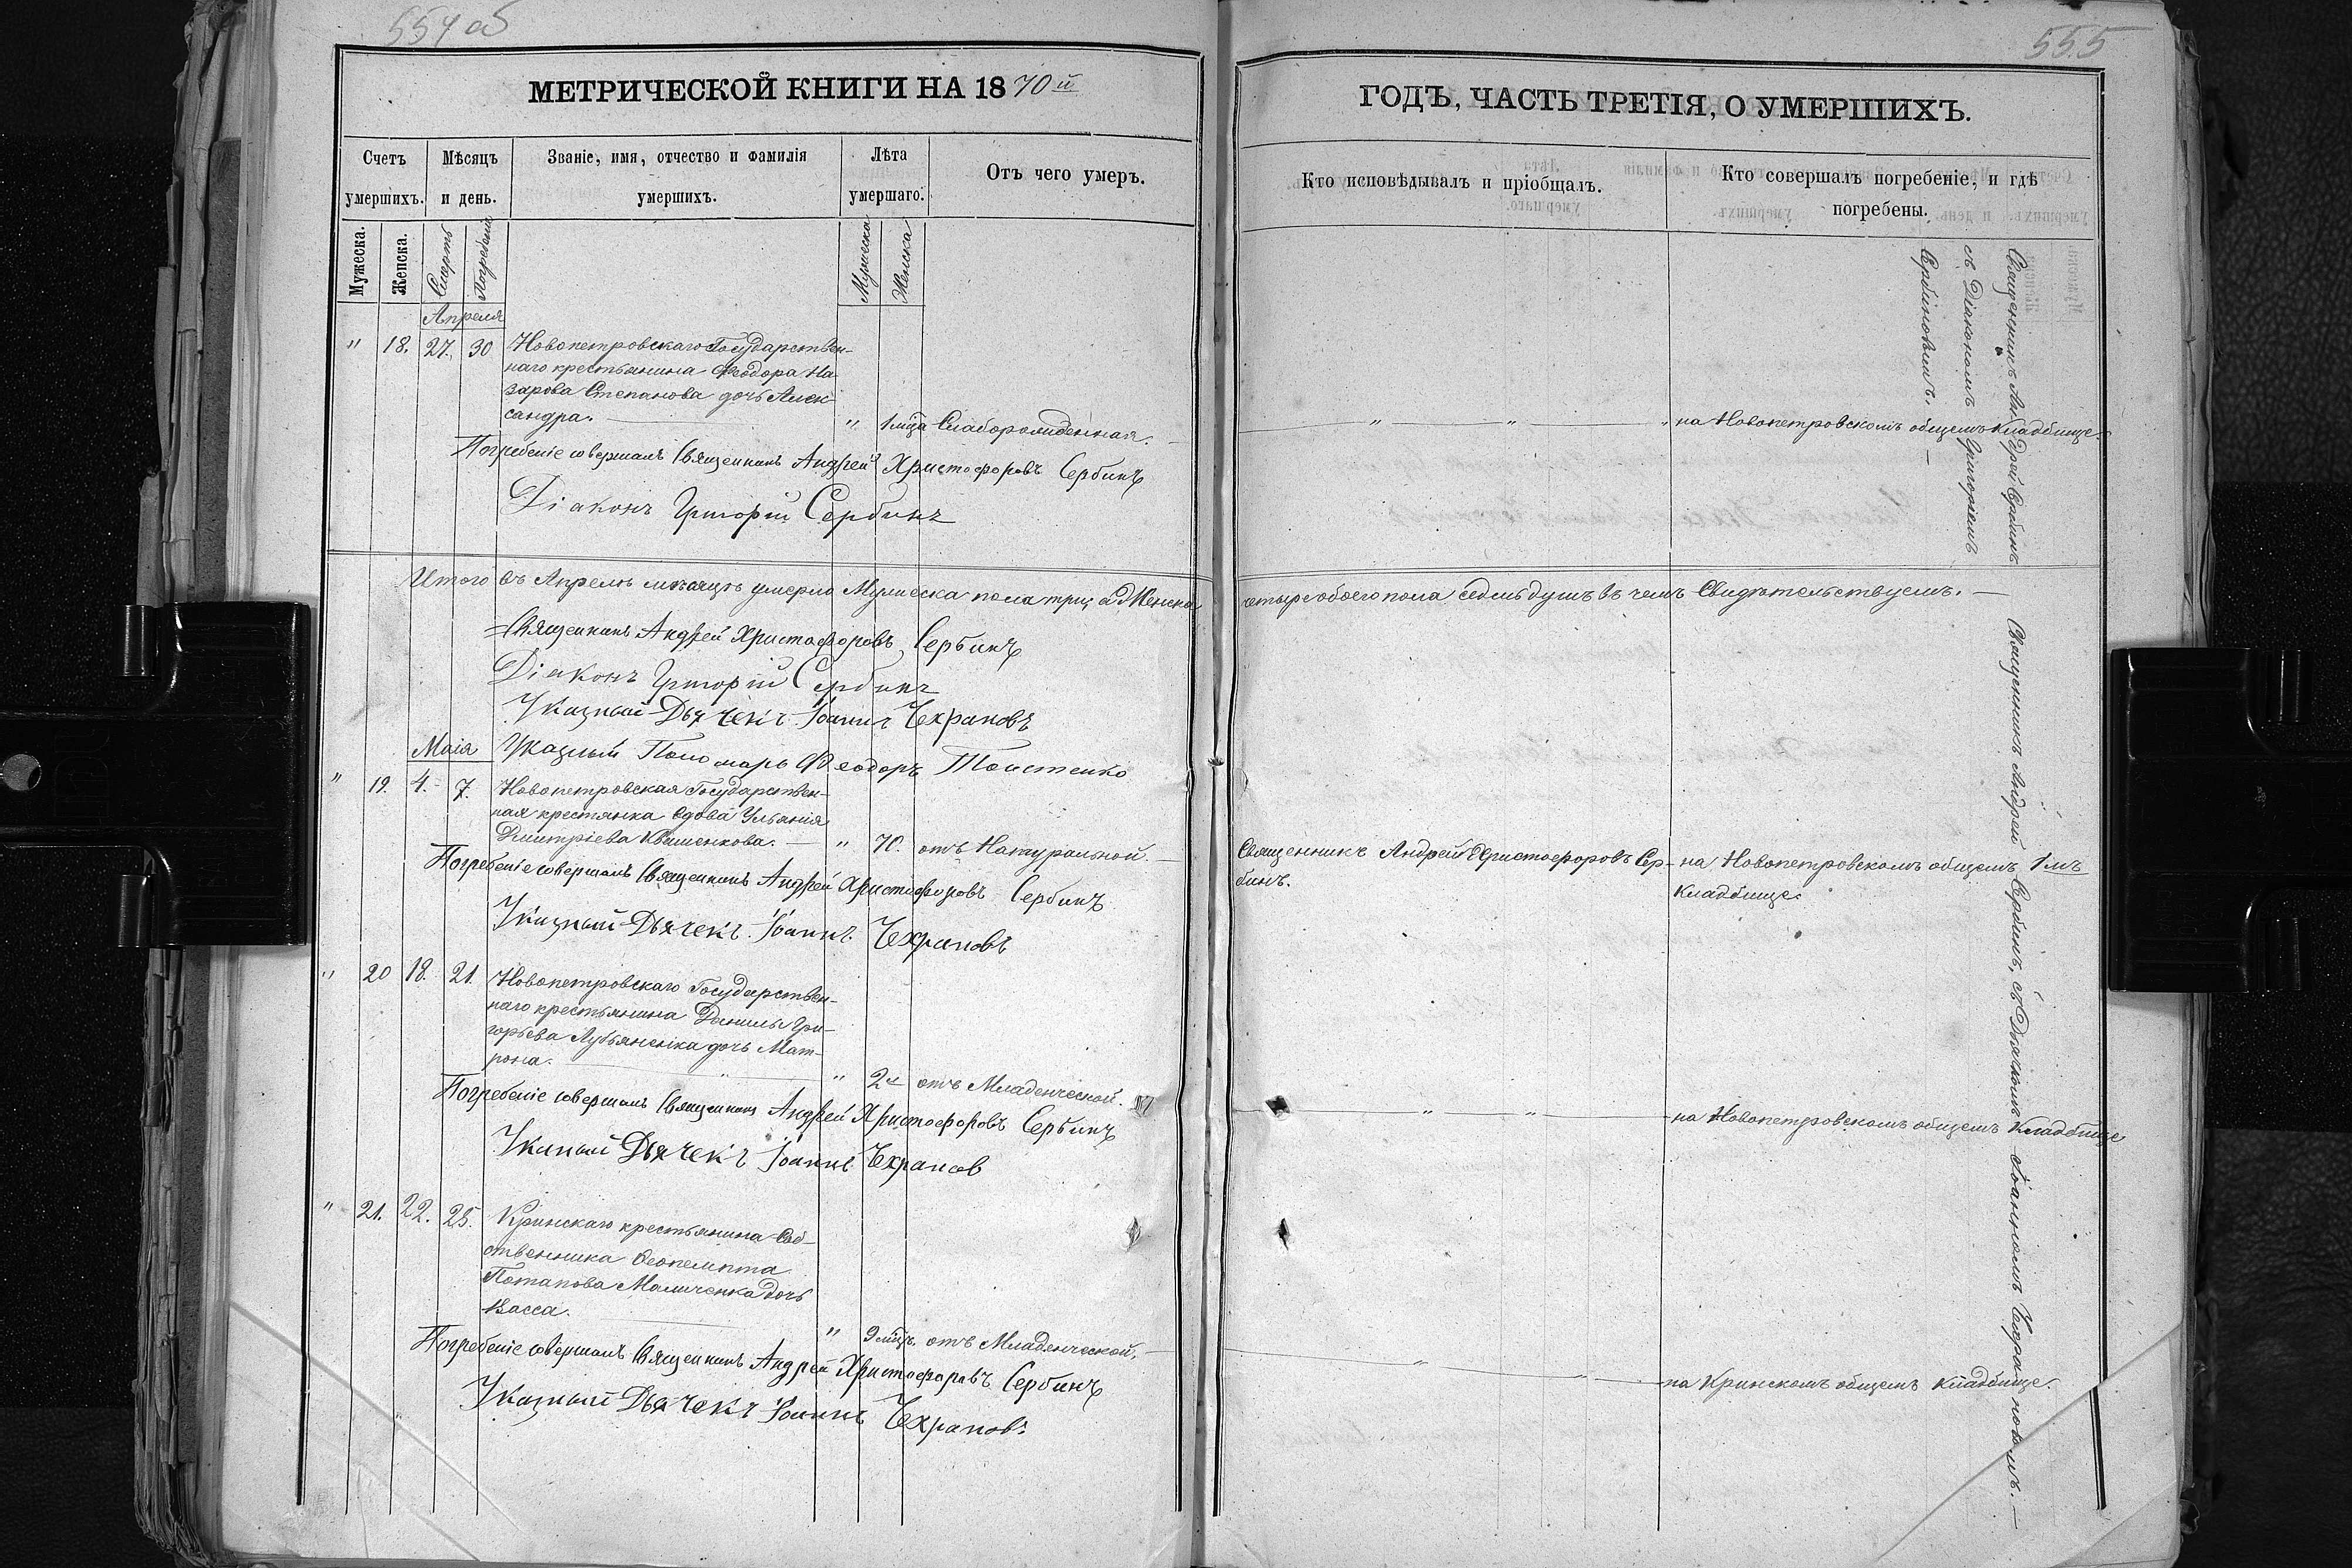 554 об
555
МЕТРИЧЕСКОЙ КНИГИ НА 1870й
ГОДЪ, ЧАСТЬ ТРЕТІЯ, О УМЕРШИХЪ.
Счетъ умершихъ.
Мѣсяцъ и день.
Званіе, имя, отчество и фамилія умершихъ.
Лѣта умершаго.
Отъ чего умеръ.
Кто исповѣдывалъ и пріобщалъ.
Кто совершалъ погребеніе, и гдѣ погребены.
Мужеска.
Женска.
Смерть
Погребенія
Мужеска
Женска
Апреля
" 18. 27. 30 Новопетровскаго Государствен-
наго крестьянина Феодора На-
зарова Степанова дочь Алек-
сандра. " 1 мца Слаборожденная. " " " на Новопетровскомъ общемъ Кладбище.
Погребеніе совершалъ Священникъ Андрей Христофоровъ Сербинъ
Діаконъ Григорій Сербинъ
Священникъ Андрей Сербинъ
съ Діакономъ Григоріемъ
Сербиновымъ.
Итого въ Апреле месяцѣ умерло Мужеска пола три, а Женска четыре обоего пола седмь душъ въ чемъ Свидѣтельствуемъ.
Священникъ Андрей Христофоровъ Сербинъ
Діаконъ Григорій Сербинъ
Указный Дьячекъ Іоаннъ Чехрановъ
Указный Пономарь Феодоръ Тостенко
Маія
" 19. 4. 7. Новопетровская Государствен-
ная крестянка вдова Ульянія
Дмитріева Квашенкова. " 70. отъ Натуральной. Священникъ Андрей Христофоровъ Сер-
бинъ.
на Новопетровскомъ общемъ 1мъ
Кладбище.
Погребеніе совершалъ Священникъ Андрей Христофоровъ Сербинъ
Указный Дьячекъ Іоаннъ Чехрановъ
" 20 18. 21. Новопетровскаго Государствен-
наго крестьянина Данилы Гри-
горьева Лубяненка дочь Мат-
рона. " " 2 отъ Младенческой. " " на Новопетровскомъ общемъ Кладбище
Погребеніе совершалъ Священникъ Андрей Христофоровъ Сербинъ
Указный Дьячекъ Іоаннъ Чехранов
" 21. 22. 25. Кринскаго крестьянина Соб-
ственника Феопемпта
Потапова Маличенка дочь
Васса. " 9 мцъ. отъ Младенческой. " " на Кринскомъ общемъ Кладбище.
Погребеніе совершалъ Священникъ Андрей Христофоровъ Сербинъ
Указный Дьячекъ Іоаннъ Чехрановъ
Священникъ Андрей Сербинъ, съ Дьячкомъ Іоанномъ Чехрановымъ.